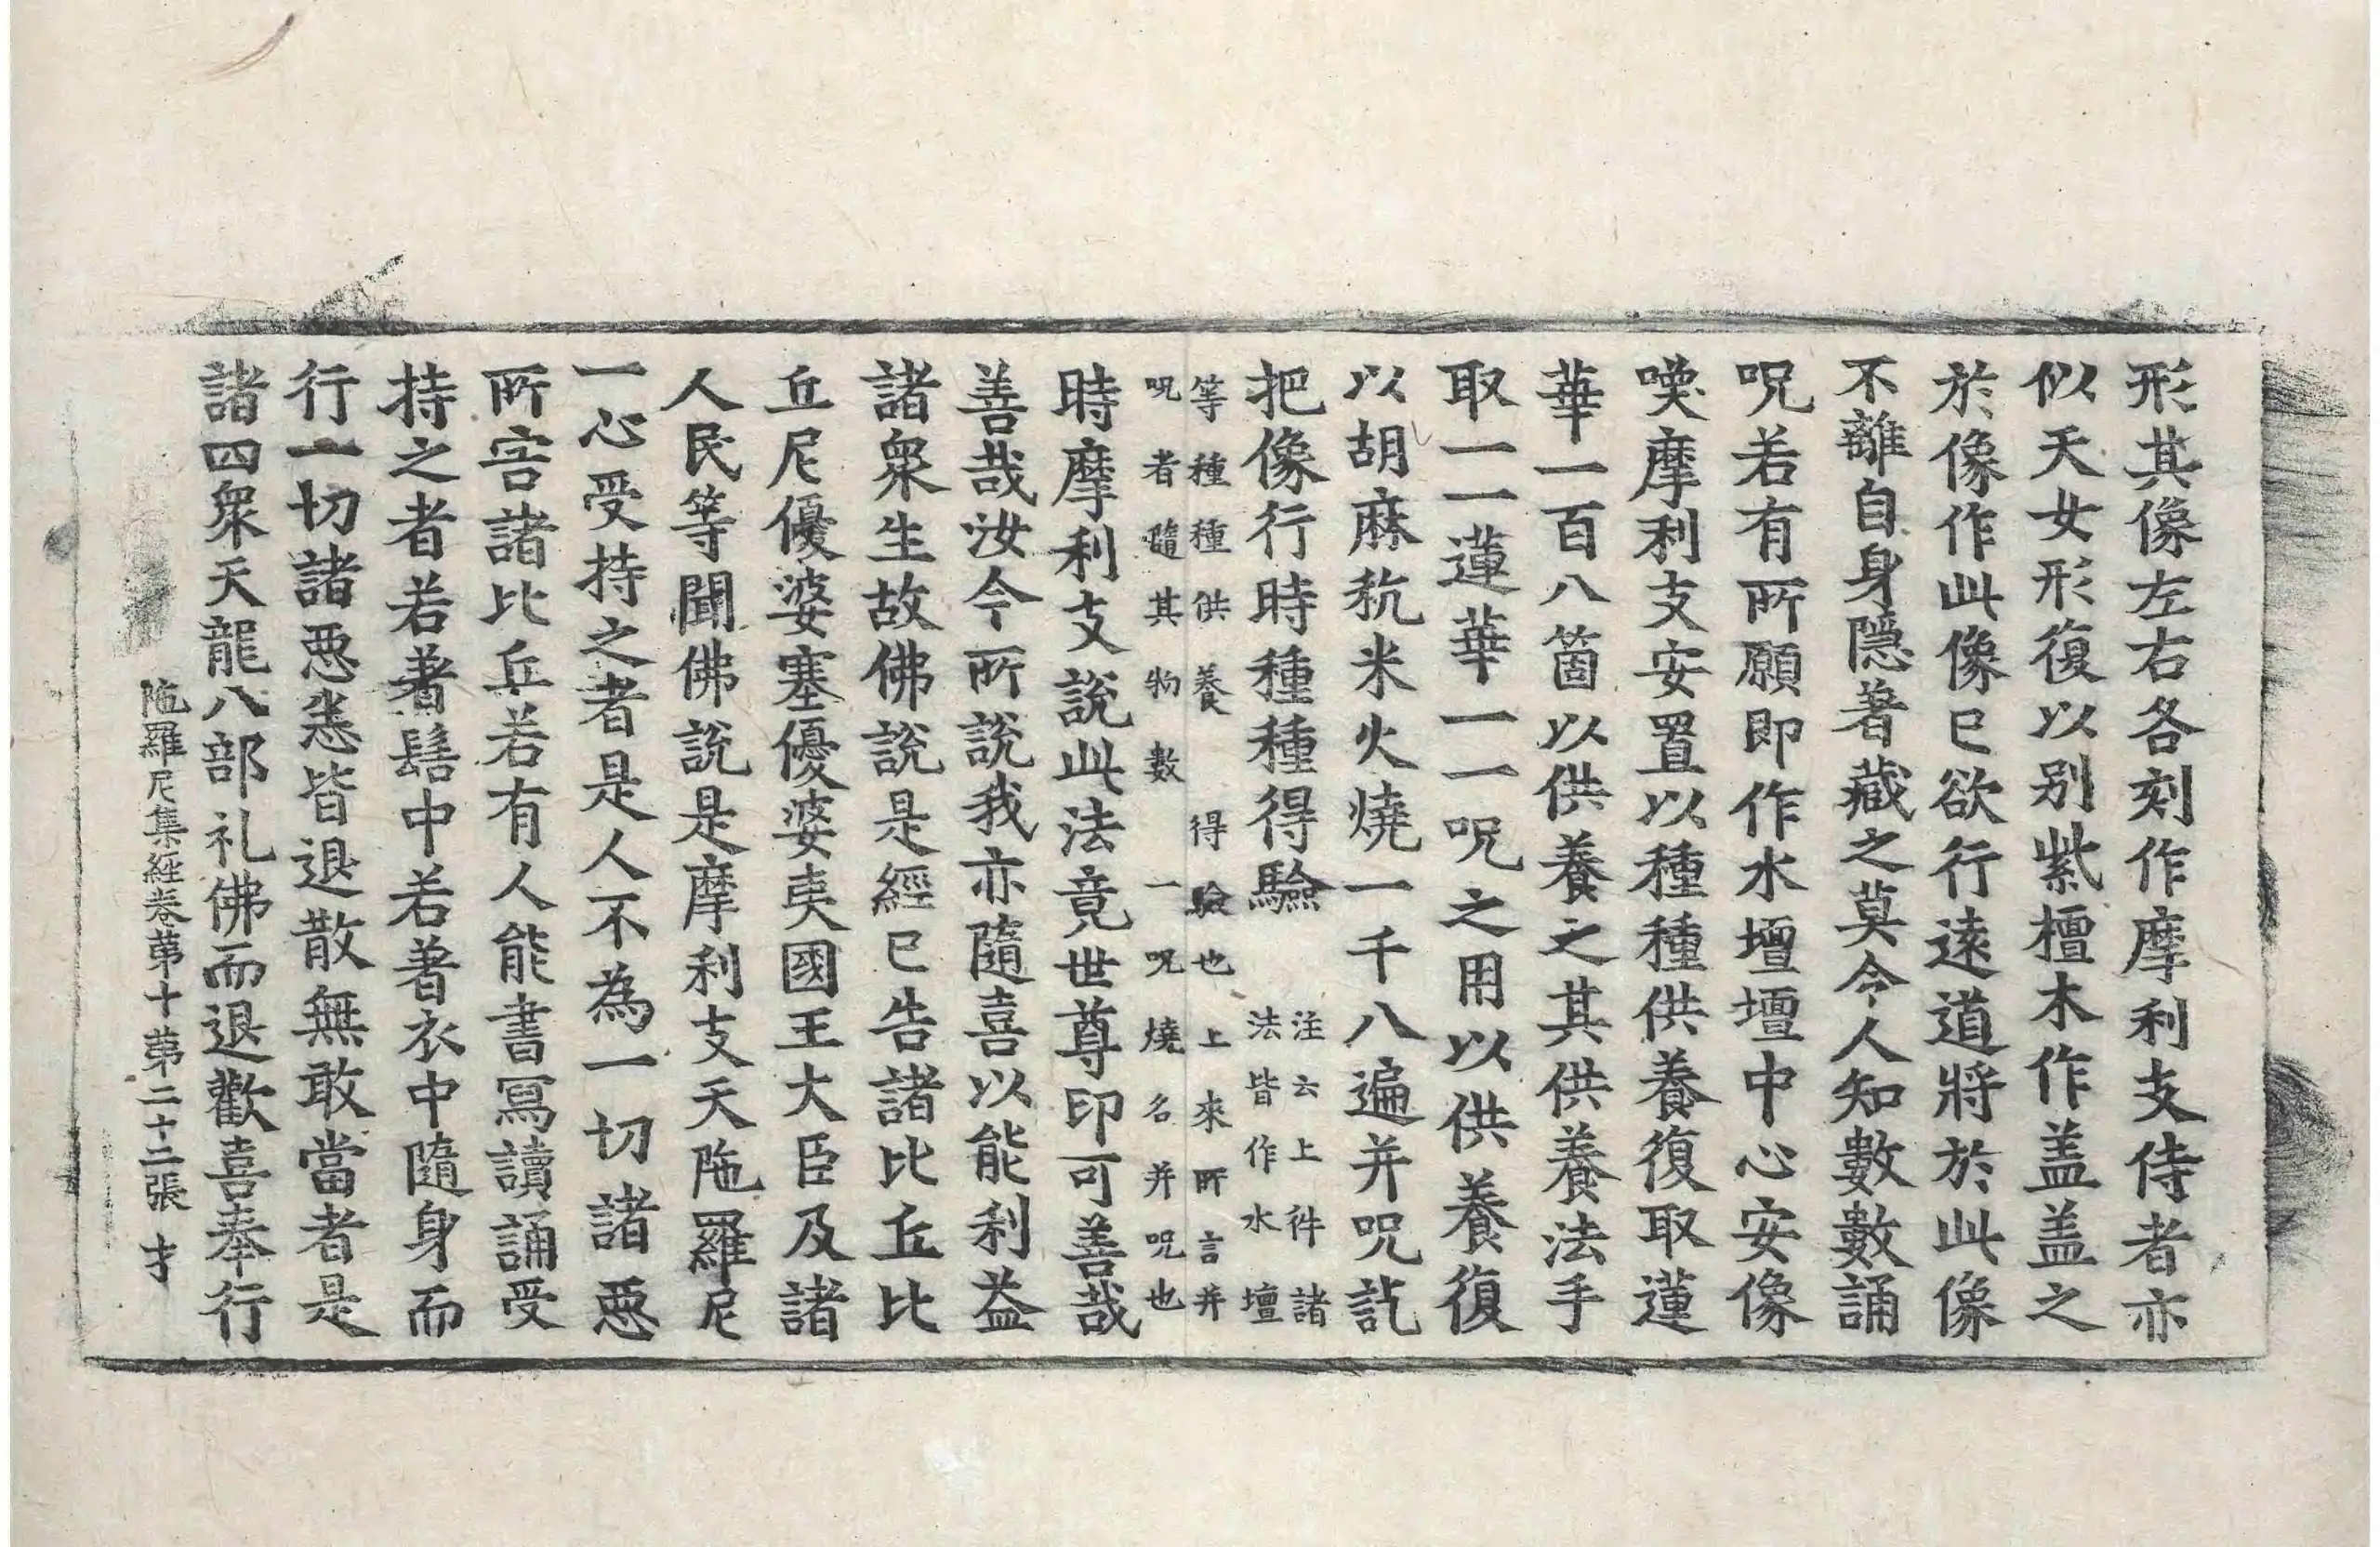 形其像左右各刻作摩利支侍者亦
似天女形復以别紫檀木作盖盖之
於像作此像已欲行遠道將於此像
不離自身隱著藏之莫令人知數數誦
呪若有所願即作水壇壇中心安像
喚摩利支安置以種種供養復取蓮
華一百八箇以供養之其供養法手
取一一蓮華一一呪之用以供養復
以胡麻秔米火燒一千八遍并呪訖
把像行時種種得驗
注云上件諸
法皆作水壇
等種種供養得驗也上來所言并
呪者隨其物數一呪燒名并呪也
時摩利支說此法竟世尊印可善哉
善哉汝今所說我亦隨喜以能利益
諸衆生故佛說是經已告諸比丘比
丘尼優婆塞優婆夷國王大臣及諸
人民等聞佛說是摩利支天陁羅尼
一心受持之者是人不為一切諸惡
所害諸比丘若有人能書寫讀誦受
持之者若著髻中若著衣中隨身而
行一切諸惡悉皆退散無敢當者是
諸四衆天龍八部礼佛而退歡喜奉行
陁羅尼集經卷第十第二十二張 才